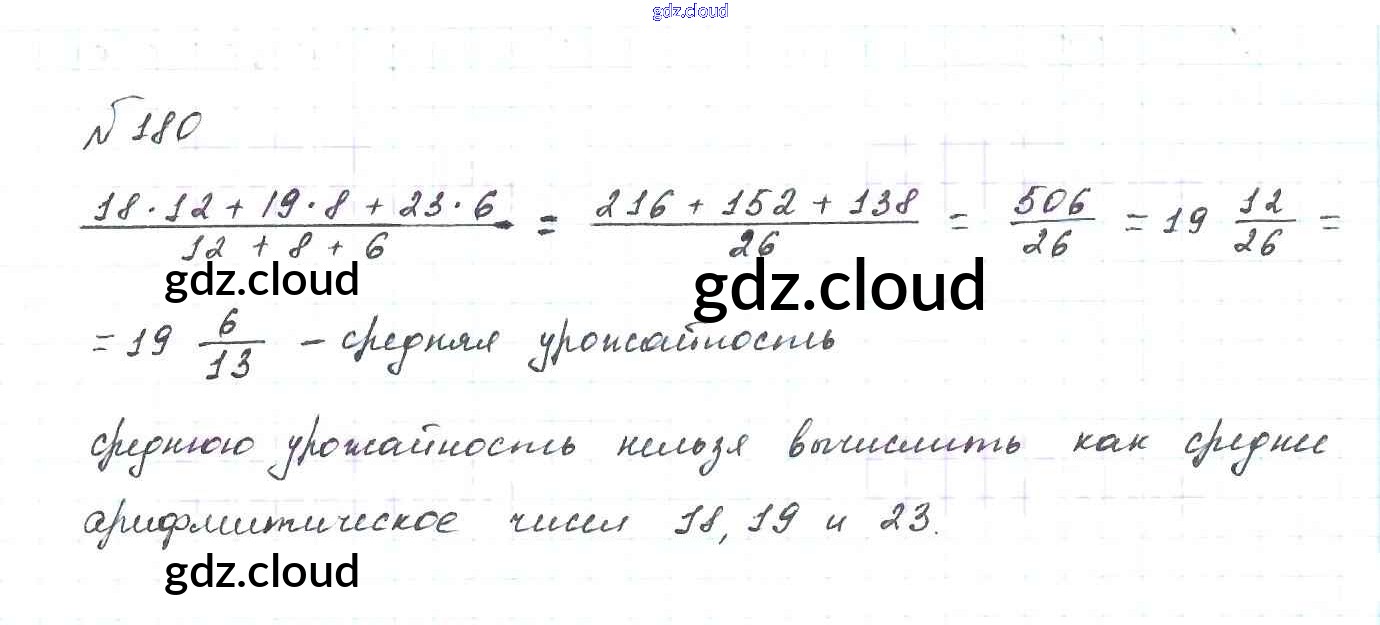 gdz.cloud
№180
18·12+19·8+23·6 / 12+8+6 = 216+152+138 / 26 = 506/26 = 19 12/26 =
gdz.cloud gdz.cloud
= 19 6/13 – средняя урожайность
среднюю урожайность нельзя вычислить как среднее
арифмитическое чисел 18, 19 и 23.
gdz.cloud